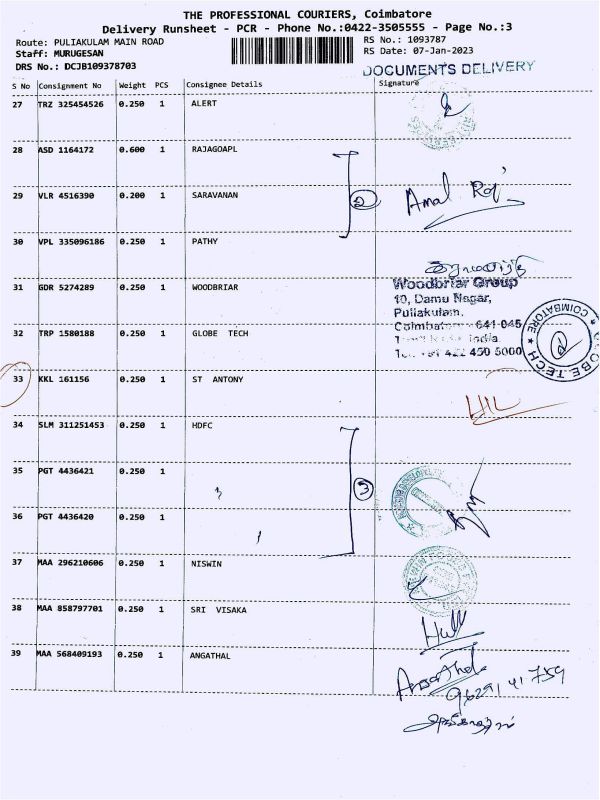 THE PROFESSIONAL COURIERS, Coimbatore
Delivery Runsheet - PCR - Phone No.:0422-3505555 - Page No.:3
Route: PULIAKULAM MAIN ROAD
RS No.: 1093787
Staff: MURUGESAN
RS Date: 07-Jan-2023
DRS No.: DCJB109378703
DOCUMENTS DELIVERY
S No Consignment No Weight PCS Consignee Details Signature
27 TRZ 325454526 0.250 1 ALERT
28 ASD 1164172 0.600 1 RAJAGOAPL
29 VLR 4516390 0.200 1 SARAVANAN
2
Amal Roj
30 VPL 335096186 0.250 1 PATHY
31 GDR 5274289 0.250 1 WOODBRIAR
Woodbriar Group
10, Damu Nagar,
Puliakulam,
Coimbatore 641 045
India
+91 422 450 5000
COIMBATORE
GLOBE TECH
32 TRP 1580188 0.250 1 GLOBE TECH
33 KKL 161156 0.250 1 ST ANTONY
34 SLM 311251453 0.250 1 HDFC
35 PGT 4436421 0.250 1
3
36 PGT 4436420 0.250 1
37 MAA 296210606 0.250 1 NISWIN
38 MAA 858797701 0.250 1 SRI VISAKA
39 MAA 568409193 0.250 1 ANGATHAL
Angathal
96291 41759